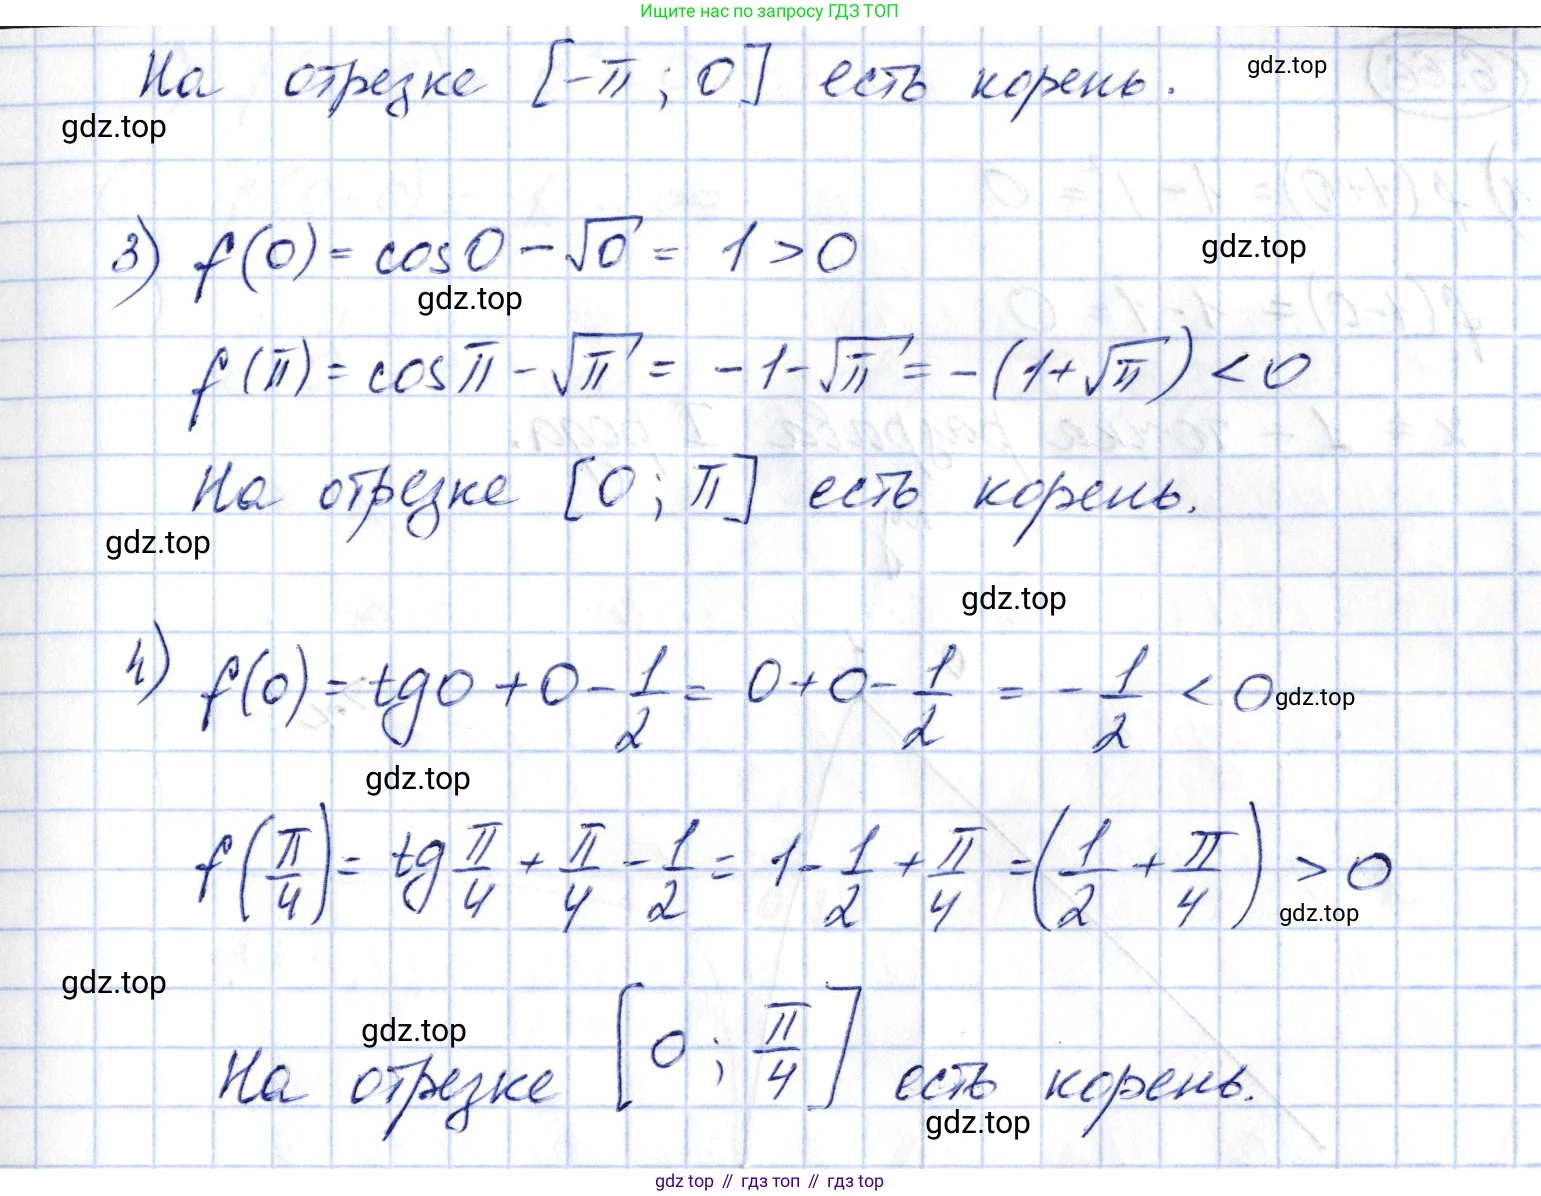 Ищите нас по запросу ГДЗ ТОП
На отрезке [-π ; 0] есть корень.
gdz.top
gdz.top
3) f(0) = cos0 - √0 = 1 > 0
gdz.top
gdz.top
f(π) = cosπ - √π = -1 - √π = -(1 + √π) < 0
На отрезке [0 ; π] есть корень.
gdz.top
gdz.top
4) f(0) = tg0 + 0 - 1/2 = 0 + 0 - 1/2 = - 1/2 < 0
gdz.top
gdz.top
f(π/4) = tg π/4 + π/4 - 1/2 = 1 - 1/2 + π/4 = (1/2 + π/4) > 0
gdz.top
gdz.top
gdz.top
На отрезке [0 ; π/4] есть корень.
gdz.top
gdz top // гдз топ // гдз top